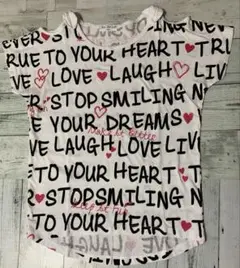 EVER STOP SMILING NEV
RUE TO YOUR HEART TRU
LOVE LAUGH LIV
ER STOP SMILING NE
E YOUR DREAMS
VE LOVE LAUGH LOVE LI
TO YOUR HEART T
R STOP SMILING N
TO YOUR HEART T
VE LAUGH